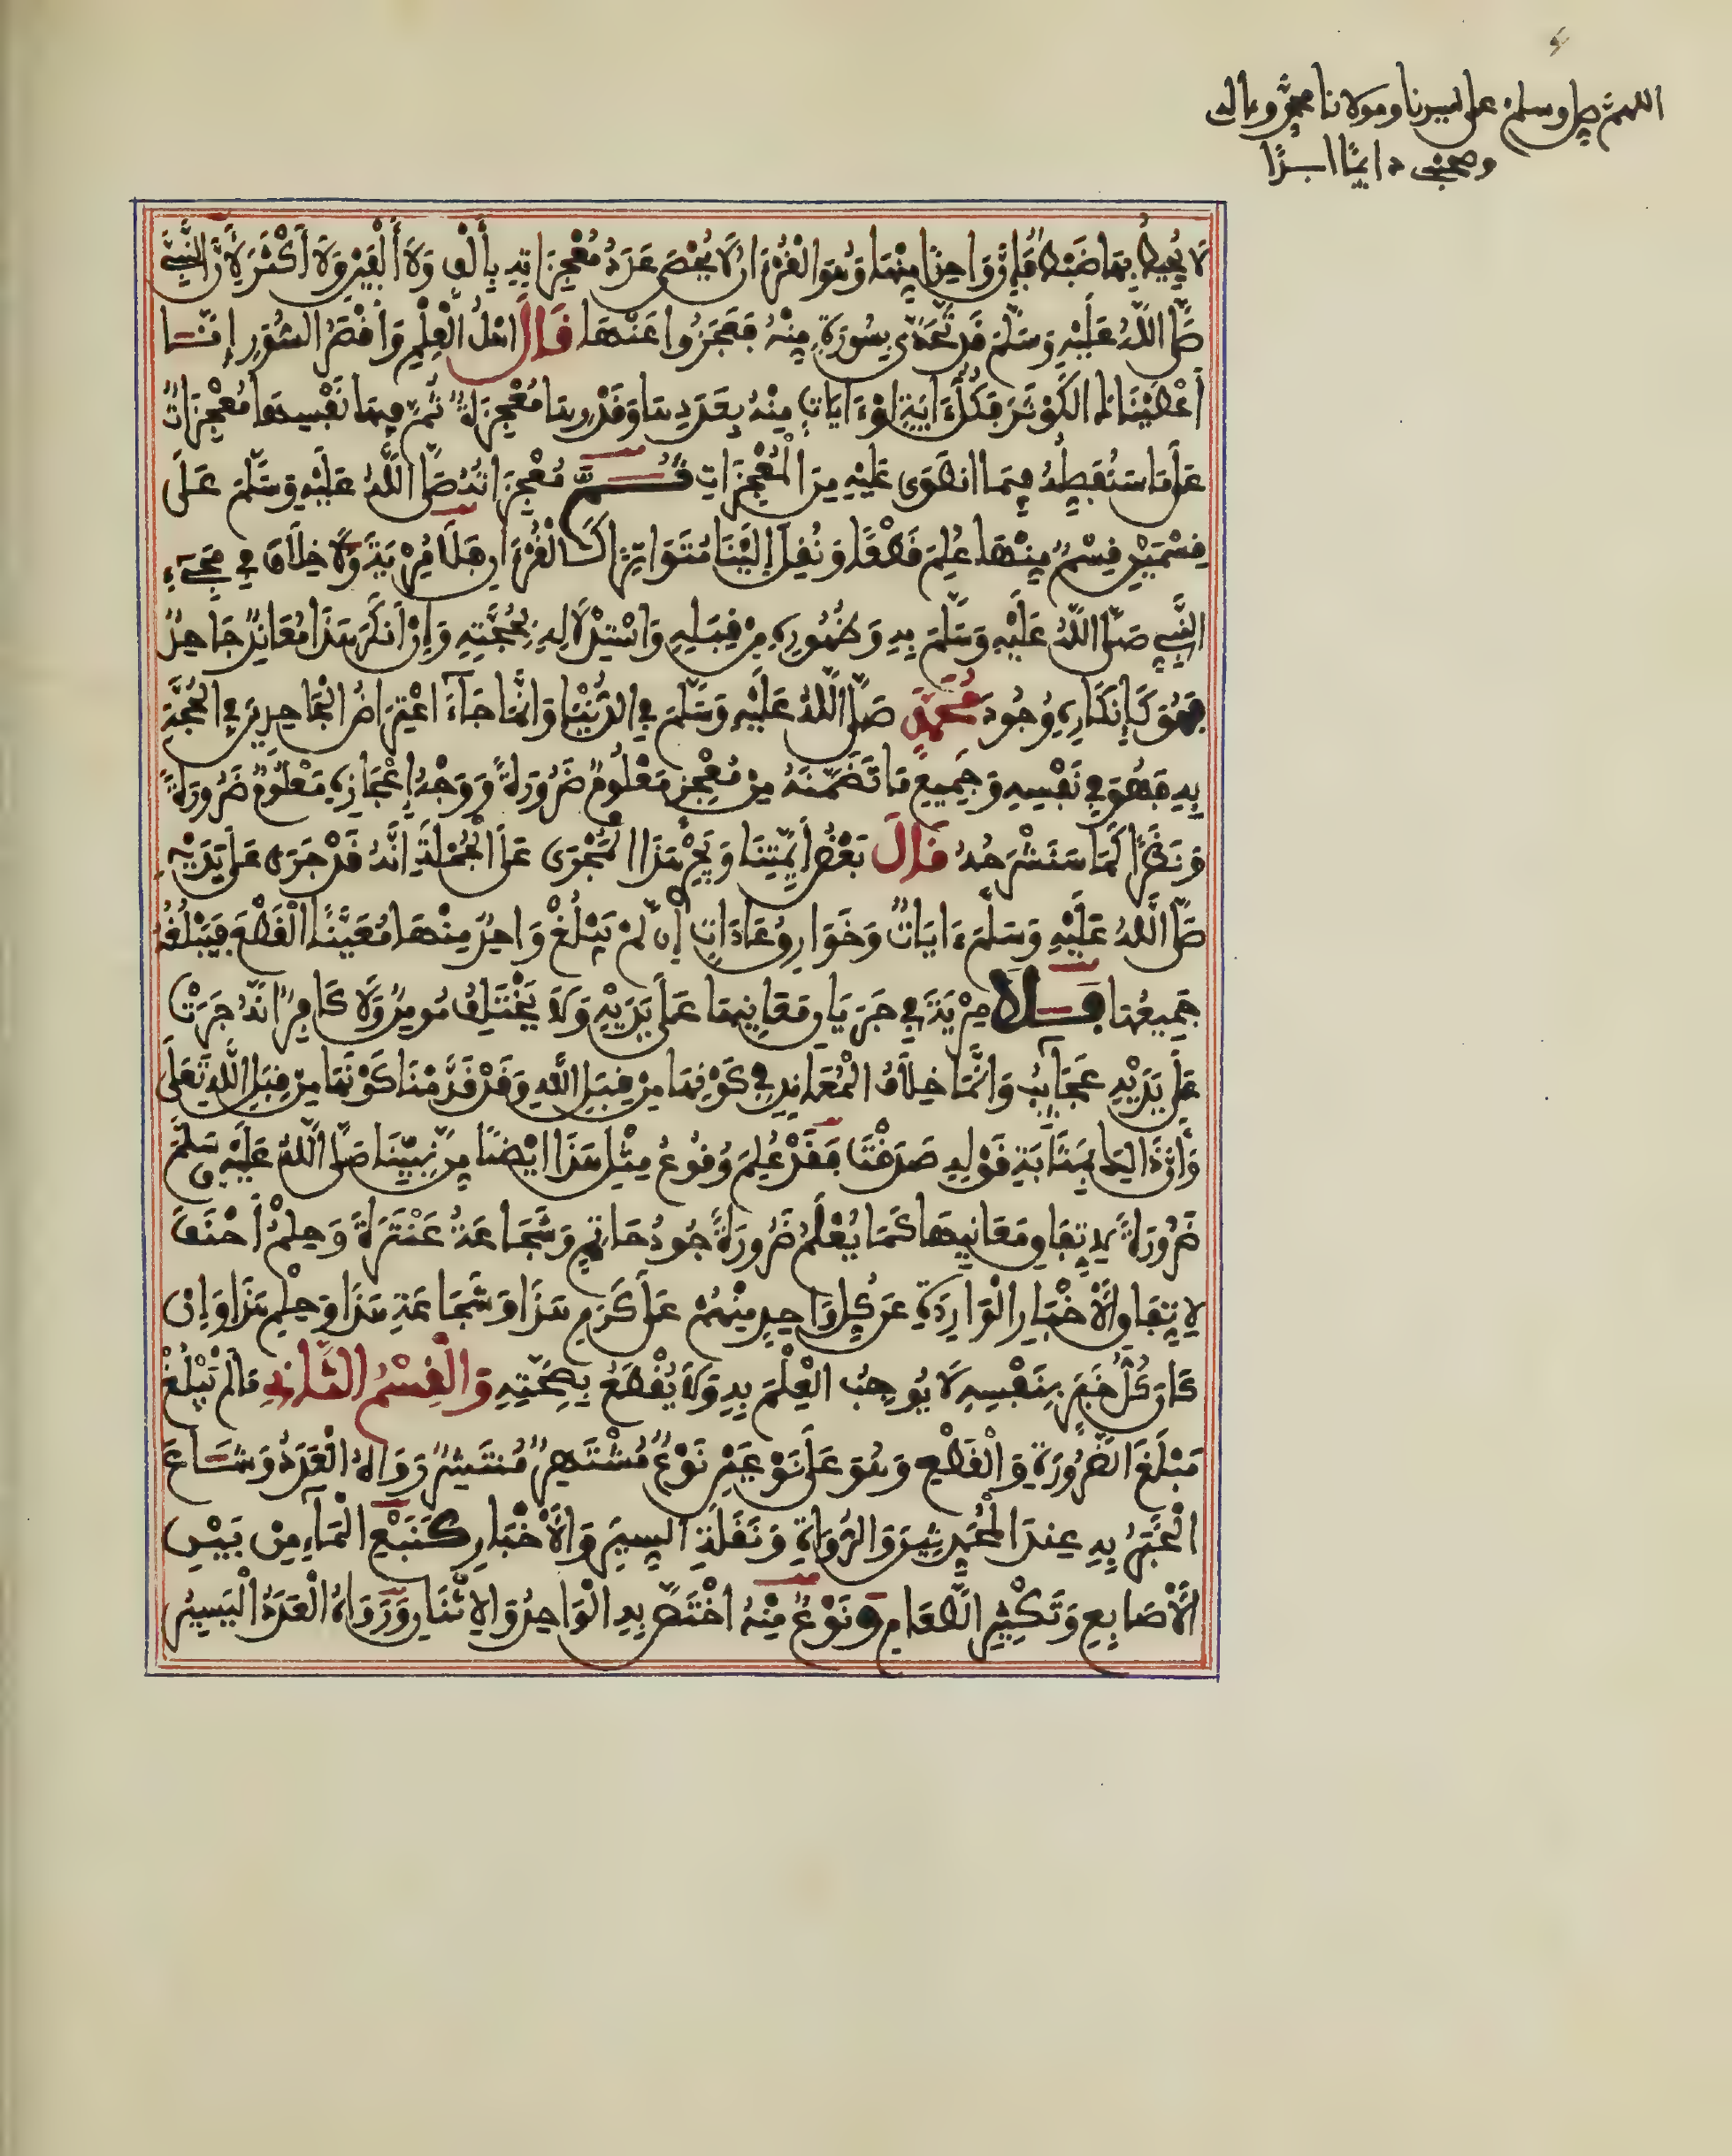 اللهم صل وسلم على سيدنا ومولانا محمد وءاله
وصحبه دايما ابدا
لَا يُحِيطُ بِهَا ضَبْطٌ فَإِنَّ وَاحِدًا مِنْهَا وَهُوَ الْقُرْءَانُ لَا يُحْصَى عَدَدُ مُعْجِزَاتِهِ بِأَلْفٍ وَلَا أَلْفَيْنِ وَلَا أَكْثَرَ لِأَنَّ النَّبِيَّ
صَلَّى اللَّهُ عَلَيْهِ وَسَلَّمَ قَدْ تَحَدَّى بِسُورَةٍ مِنْهُ فَعَجَزُوا عَنْهَا قَالَ اهْلُ الْعِلْمِ وَاقْصَرُ السُّوَرِ إِنَّا
أَعْطَيْنَاكَ الْكَوْثَرَ فَكُلُّ ءَايَةٍ اوْ ءَايَاتٍ مِنْهُ بِعَدَدِهَا وَقَدْرِهَا مُعْجِزَةٌ ثُمَّ فِيهَا نَفْسِهَا مُعْجِزَاتٌ
عَلَى مَا سَنُفَصِّلُهُ فِيمَا انْطَوَى عَلَيْهِ مِنَ الْمُعْجِزَاتِ ثُمَّ مُعْجِزَاتُهُ صَلَّى اللَّهُ عَلَيْهِ وَسَلَّمَ عَلَى
قِسْمَيْنِ قِسْمٌ مِنْهَا عُلِمَ قَطْعًا وَنُقِلَ إِلَيْنَا مُتَوَاتِرًا كَالْقُرْءَانِ فَلَا مِرْيَةَ وَلَا خِلَافَ فِي مَجِيءِ
النَّبِيِّ صَلَّى اللَّهُ عَلَيْهِ وَسَلَّمَ بِهِ وَظُهُورِهِ مِنْ قِبَلِهِ وَاسْتِدْلَالِهِ بِحُجَّتِهِ وَإِنْ أَنْكَرَ هَذَا مُعَانِدٌ جَاحِدٌ
فَهُوَ كَإِنْكَارِهِ وُجُودَ مُحَمَّدٍ صَلَّى اللَّهُ عَلَيْهِ وَسَلَّمَ فِي الدُّنْيَا وَإِنَّمَا جَاءَ اعْتِرَاضُ الْجَاحِدِينَ فِي الْحُجَّةِ
بِهِ فَهُوَ فِي نَفْسِهِ وَجَمِيعِ مَا تَضَمَّنَهُ مِنْ مُعْجِزٍ مَعْلُومٌ ضَرُورَةً وَوَجْهُ إِعْجَازِهِ مَعْلُومٌ ضَرُورَةً
وَنَظَرًا كَمَا سَنَشْرَحُهُ قَالَ بَعْضُ أَئِمَّتِنَا وَيَجْرِي هَذَا الْمَجْرَى عَلَى الْجُمْلَةِ أَنَّهُ قَدْ جَرَى عَلَى يَدَيْهِ
صَلَّى اللَّهُ عَلَيْهِ وَسَلَّمَ ءَايَاتٌ وَخَوَارِقُ عَادَاتٍ إِنْ لَمْ يَبْلُغْ وَاحِدٌ مِنْهَا مُعَيَّنًا الْقَطْعَ فَيَبْلُغُهُ
جَمِيعُهَا فَلَا مِرْيَةَ فِي جَرَيَانِ مَعَانِيهَا عَلَى يَدَيْهِ وَلَا يَخْتَلِفُ مُومِنٌ وَلَا كَافِرٌ أَنَّهُ جَرَتْ
عَلَى يَدَيْهِ عَجَائِبُ وَإِنَّمَا خِلَافُ الْمُعَانِدِ فِي كَوْنِهَا مِنْ قِبَلِ اللَّهِ وَقَدْ قَدَّمْنَا كَوْنَهَا مِنْ قِبَلِ اللَّهِ تَعَلَى
وَأَنَّ ذَالِكَ بِمَثَابَةِ قَوْلِهِ صَدَقْتَ فَقَدْ عُلِمَ وُقُوعُ مِثْلِ هَذَا ايْضًا مِنْ نَبِيِّنَا صَلَّى اللَّهُ عَلَيْهِ وَسَلَّمَ
ضَرُورَةً لِاتِّفَاقِ مَعَانِيهَا كَمَا يُعْلَمُ ضَرُورَةً جُودُ حَاتِمٍ وَشَجَاعَةُ عَنْتَرَةَ وَحِلْمُ أَحْنَفَ
لِاتِّفَاقِ الْأَخْبَارِ الْوَارِدَةِ عَنْ كُلِّ وَاحِدٍ مِنْهُمْ عَلَى كَرَمِ هَذَا وَشَجَاعَةِ هَذَا وَحِلْمِ هَذَا وَإِنْ
كَانَ كُلُّ خَبَرٍ بِنَفْسِهِ لَا يُوجِبُ الْعِلْمَ بِهِ وَلَا يُقْطَعُ بِصِحَّتِهِ وَالْقِسْمُ الثَّانِي مَا لَمْ يَبْلُغْ
مَبْلَغَ الضَّرُورَةِ وَالْقَطْعِ وَهُوَ عَلَى نَوْعَيْنِ نَوْعٌ مُشْتَهِرٌ مُنْتَشِرٌ رَوَاهُ الْعَدَدُ وَشَاعَ
الْخَبَرُ بِهِ عِنْدَ الْمُحَدِّثِينَ وَالرُّوَاةِ وَنَقَلَةِ السِّيَرِ وَالْأَخْبَارِ كَنَبْعِ الْمَاءِ مِنْ بَيْنِ
الْأَصَابِعِ وَتَكْثِيرِ الطَّعَامِ وَنَوْعٌ مِنْهُ اخْتَصَّ بِهِ الْوَاحِدُ وَالِاثْنَانِ وَرَوَاهُ الْعَدَدُ الْيَسِيرُ